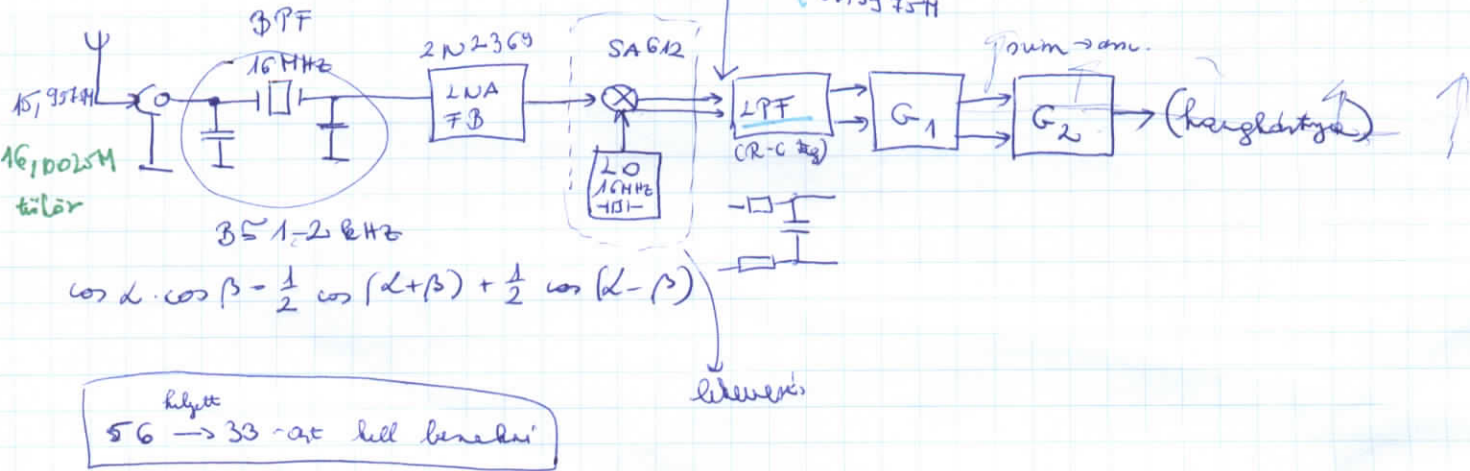 BPF
16 MHz
2N2369
SA612
15,997M
16,0025M
tükör
LNA
FB
LO
16MHz
LPF
(R-C tag)
G1
G2
(hangkártya)
B≤1-2 kHz
cos α · cos β = 1/2 cos (α+β) + 1/2 cos (α-β)
lekeverés
helyett
56 → 33-at kell berakni